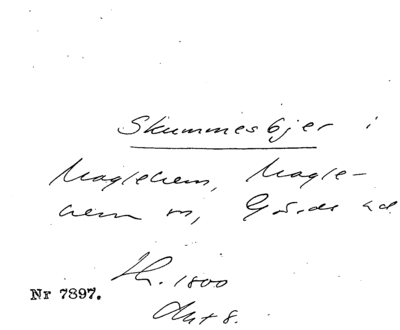 Skummesbjer i
Maglehem, Magle-
hem sn, Gärds hd
1800
Nr 7897.
Akt 8.